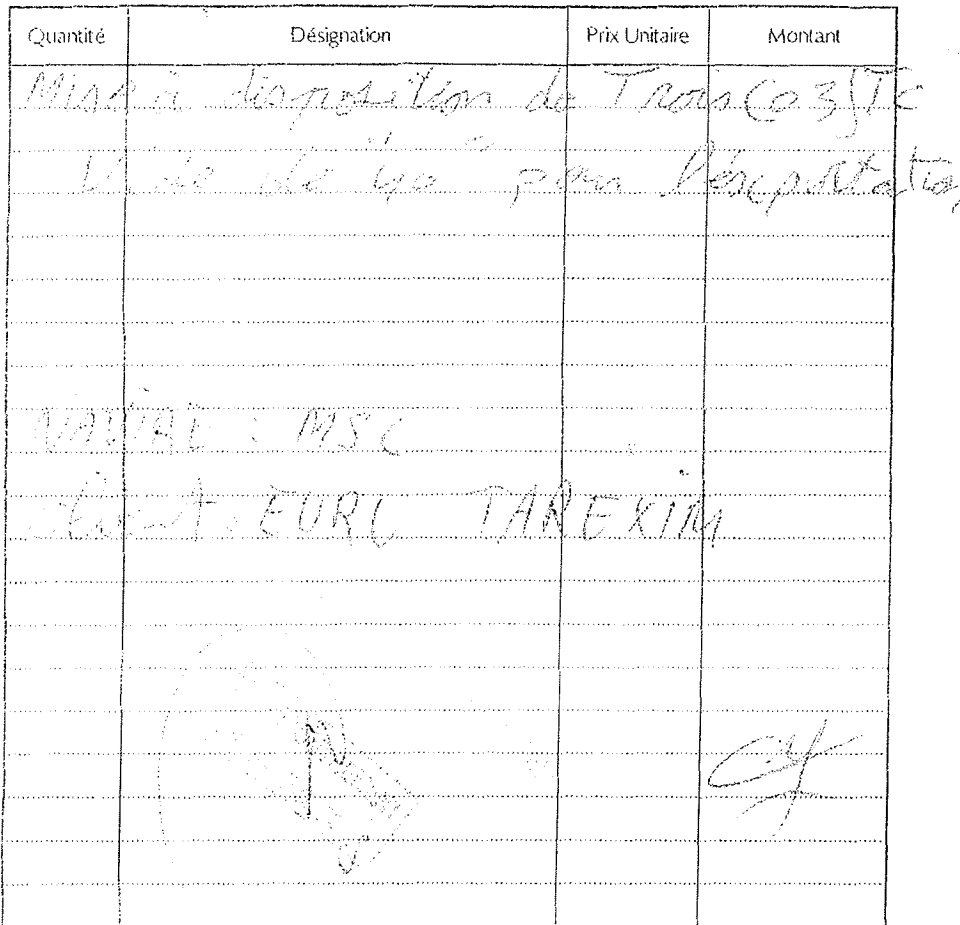 Quantité Désignation Prix Unitaire Montant
Mise à disposition de Trois (03) TC
Vide de 40" pour l'exportation
NAVIRE : MSC
Client : EURL TAREXIM